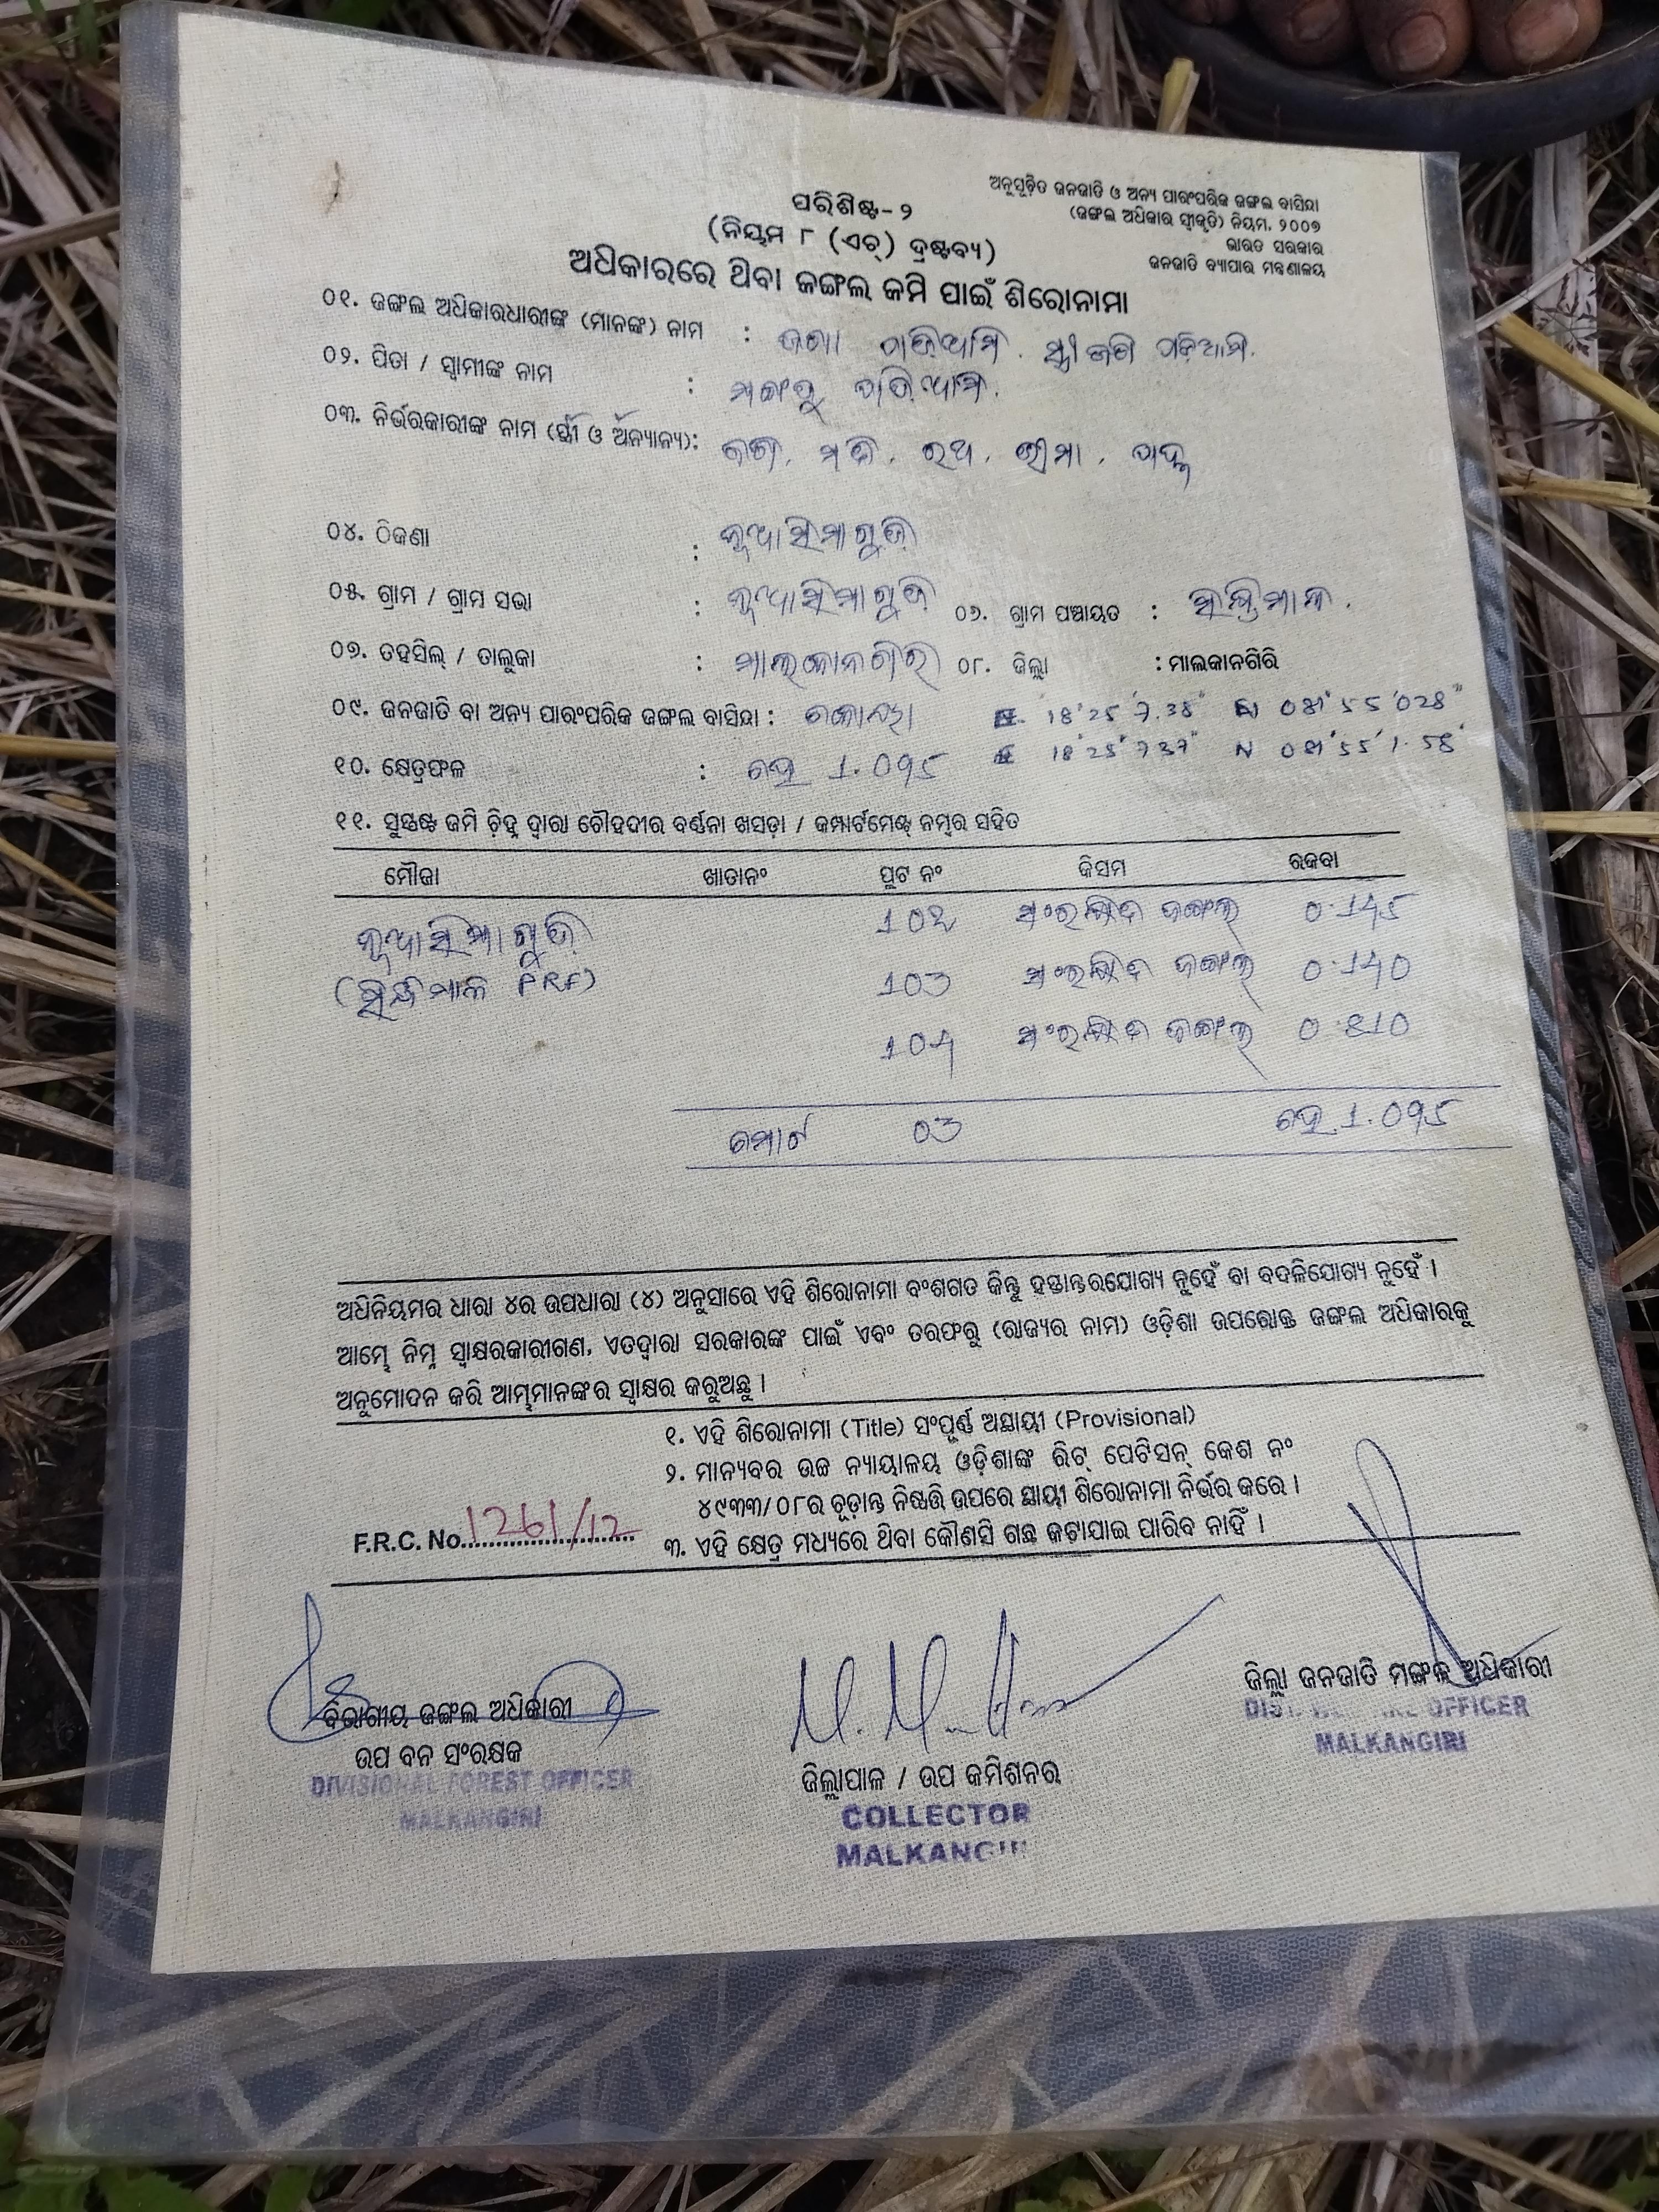 ଅନୁସୂଚିତ ଜନଜାତି ଓ ଅନ୍ୟ ପାରଂପରିକ ଜଙ୍ଗଲ ବାସିନ୍ଦା
(ଜଙ୍ଗଲ ଅଧିକାର ସ୍ୱୀକୃତି) ନିୟମ, ୨୦୦୭
ଭାରତ ସରକାର
ଜନଜାତି ବ୍ୟାପାର ମନ୍ତ୍ରଣାଳୟ
ପରିଶିଷ୍ଟ-୨
(ନିୟମ ୮ (ଏଚ୍) ଦ୍ରଷ୍ଟବ୍ୟ)
ଅଧିକାରରେ ଥିବା ଜଙ୍ଗଲ ଜମି ପାଇଁ ଶିରୋନାମା
୦୧. ଜଙ୍ଗଲ ଅଧିକାରଧାରୀଙ୍କ (ମାନଙ୍କ) ନାମ :
୦୨. ପିତା / ସ୍ୱାମୀଙ୍କ ନାମ :
୦୩. ନିର୍ଭରକାରୀଙ୍କ ନାମ (ସ୍ତ୍ରୀ ଓ ଅନ୍ୟାନ୍ୟ):
୦୪. ଠିକଣା : ନୂଆସିମାଗୁଡ଼ି
୦୫. ଗ୍ରାମ / ଗ୍ରାମ ସଭା : ନୂଆସିମାଗୁଡ଼ି ୦୬. ଗ୍ରାମ ପଞ୍ଚାୟତ :
୦୭. ତହସିଲ୍ / ତାଲୁକା : ମାଲକାନଗିରି ୦୮. ଜିଲ୍ଲା : ମାଲକାନଗିରି
୦୯. ଜନଜାତି ବା ଅନ୍ୟ ପାରଂପରିକ ଜଙ୍ଗଲ ବାସିନ୍ଦା : କୋୟା 18°25'7.38" 081°55'028"
୧୦. କ୍ଷେତ୍ରଫଳ : ହେ 1.095 18°25'7.37" N 081°55'1.58"
୧୧. ସୁସ୍ପଷ୍ଟ ଜମି ଚ଼ିହ୍ନ ଦ୍ୱାରା ଚୌହଦୀର ବର୍ଣ୍ଣନା ଖସଡ଼ା / କମ୍ପାର୍ଟମେଣ୍ଟ୍ ନମ୍ବର ସହିତ
ମୌଜା ଖାତାନଂ ପ୍ଲଟ ନଂ କିସମ ରକବା
ନୂଆସିମାଗୁଡ଼ି 102 ସଂରକ୍ଷିତ ଜଙ୍ଗଲ 0.145
PRF) 103 ସଂରକ୍ଷିତ ଜଙ୍ଗଲ 0.140
104 ସଂରକ୍ଷିତ ଜଙ୍ଗଲ 0.810
ମୋଟ 03 ହେ. 1.095
ଅଧିନିୟମର ଧାରା ୪ର ଉପଧାରା (୪) ଅନୁସାରେ ଏହି ଶିରୋନାମା ବଂଶଗତ କିନ୍ତୁ ହସ୍ତାନ୍ତରଯୋଗ୍ୟ ନୁହେଁ ବା ବଦଳିଯୋଗ୍ୟ ନୁହେଁ ।
ଆମ୍ଭେ ନିମ୍ନ ସ୍ୱାକ୍ଷରକାରୀଗଣ, ଏତଦ୍ୱାରା ସରକାରଙ୍କ ପାଇଁ ଏବଂ ତରଫରୁ (ରାଜ୍ୟର ନାମ) ଓଡ଼ିଶା ଉପରୋକ୍ତ ଜଙ୍ଗଲ ଅଧିକାରକୁ
ଅନୁମୋଦନ କରି ଆମ୍ଭମାନଙ୍କର ସ୍ୱାକ୍ଷର କରୁଅଛୁ ।
୧. ଏହି ଶିରୋନାମା (Title) ସଂପୂର୍ଣ୍ଣ ଅସ୍ଥାୟୀ (Provisional)
୨. ମାନ୍ୟବର ଉଚ୍ଚ ନ୍ୟାୟାଳୟ ଓଡ଼ିଶାଙ୍କ ରିଟ୍ ପେଟିସନ୍ କେଶ ନଂ
୪୯୩୩/୦୮ର ଚୂଡ଼ାନ୍ତ ନିଷ୍ପତ୍ତି ଉପରେ ସ୍ଥାୟୀ ଶିରୋନାମା ନିର୍ଭର କରେ ।
F.R.C. No. 1261/12
୩. ଏହି କ୍ଷେତ୍ର ମଧ୍ୟରେ ଥିବା କୌଣସି ଗଛ କଟାଯାଇ ପାରିବ ନାହିଁ ।
ବିଭାଗୀୟ ଜଙ୍ଗଲ ଅଧିକାରୀ
ଉପ ବନ ସଂରକ୍ଷକ
DIVISIONAL FOREST OFFICER
MALKANGIRI
ଜିଲ୍ଲାପାଳ / ଉପ କମିଶନର
COLLECTOR
MALKANGIRI
ଜିଲ୍ଲା ଜନଜାତି ମଙ୍ଗଳ ଅଧିକାରୀ
DIST. WELFARE OFFICER
MALKANGIRI